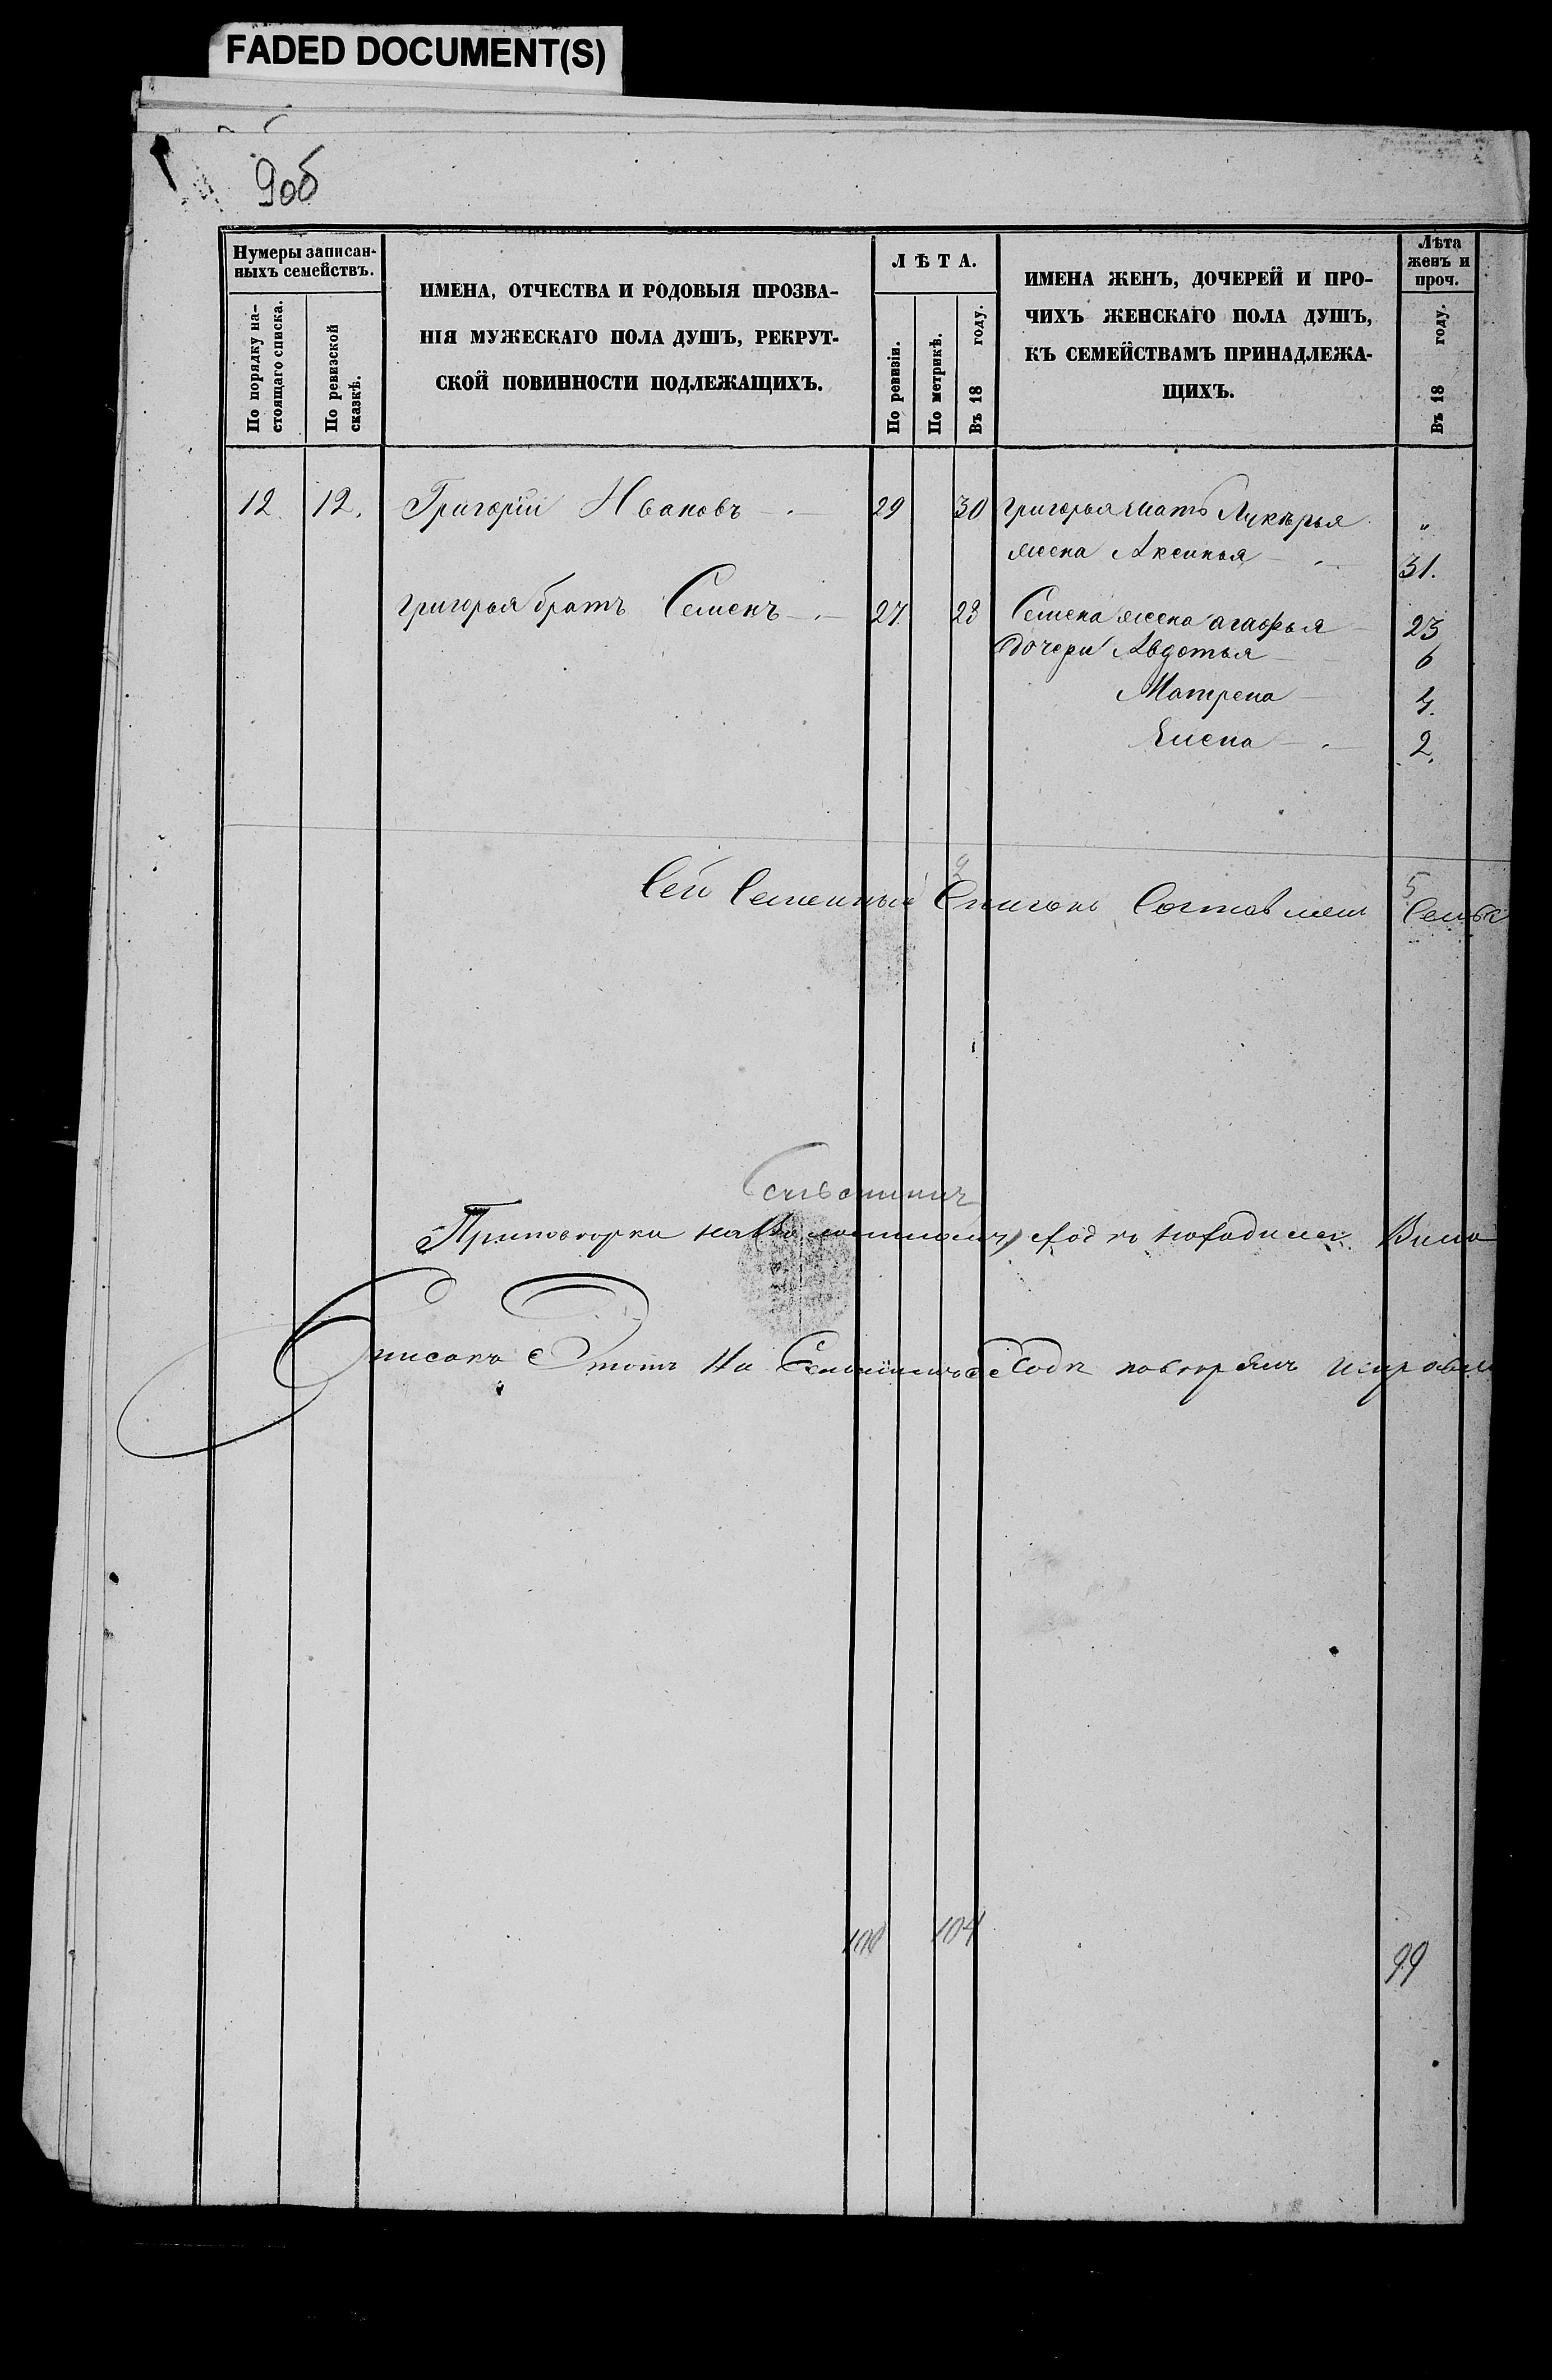 FADED DOCUMENT(S)
9об
Нумеры записан-
ныхъ семействъ.
По порядку на-
стоящаго списка.
По ревизской
сказкѣ.
ИМЕНА, ОТЧЕСТВА И РОДОВЫЯ ПРОЗВА-
НІЯ МУЖЕСКАГО ПОЛА ДУШЪ, РЕКРУТ-
СКОЙ ПОВИННОСТИ ПОДЛЕЖАЩИХЪ.
ЛѢТА.
По ревизіи.
По метрикѣ.
Въ 18 году.
ИМЕНА ЖЕНЪ, ДОЧЕРЕЙ И ПРО-
ЧИХЪ ЖЕНСКАГО ПОЛА ДУШЪ,
КЪ СЕМЕЙСТВАМЪ ПРИНАДЛЕЖА-
ЩИХЪ.
Лѣта
женъ и
проч.
Въ 18 году.
12 12. Григорій Ивановъ 29 30 Григорья мать Лукерья "
жена Аксинья 31.
Григорья братъ Семенъ 27. 28 Семена жена Агафья 23
дочери Авдотья 6
Матрена 4.
Елена 2.
2 5
Сей Семейный Списокъ Составленъ
Сельскимъ
Списокъ Этотъ На
100 104
99